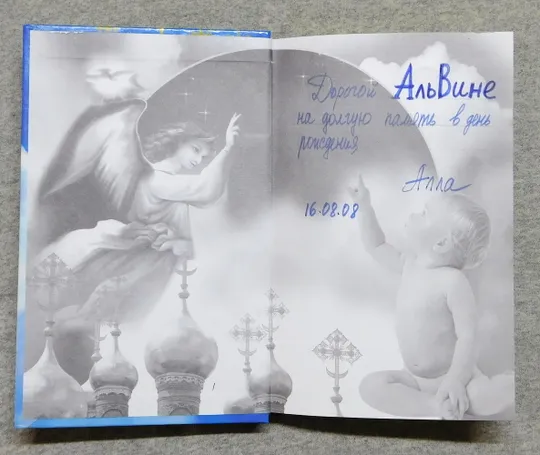 Дорогой АльВине
на долгую память в день
рождения
Алла
16.08.08